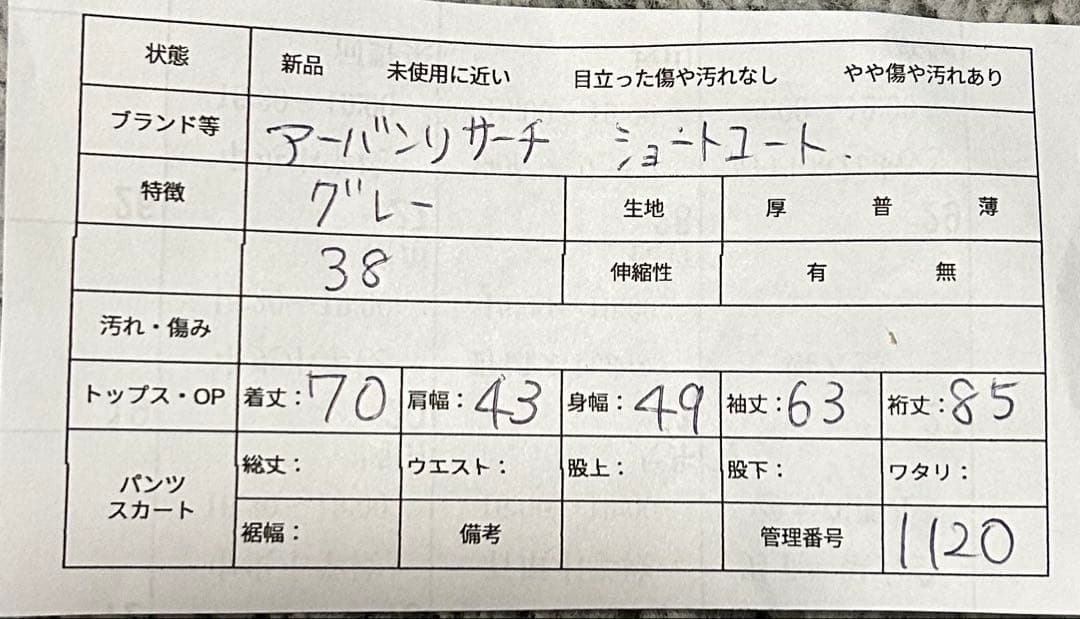 状態 新品 未使用に近い 目立った傷や汚れなし やや傷や汚れあり
ブランド等 アーバンリサーチ ショートコート
特徴 グレー 生地 厚 普 薄
38 伸縮性 有 無
汚れ・傷み
トップス・OP 着丈:70 肩幅:43 身幅:49 袖丈:63 裄丈:85
パンツ スカート 総丈: ウエスト: 股上: 股下: ワタリ:
裾幅: 備考 管理番号 1120